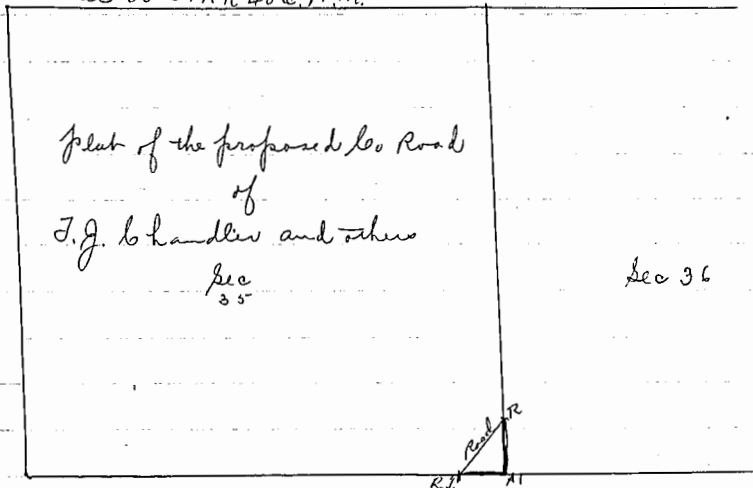 Plat of the proposed Co Road
of
T.J. Chandler and others
Sec
35
Sec 36
Road
R
R.I.
A1